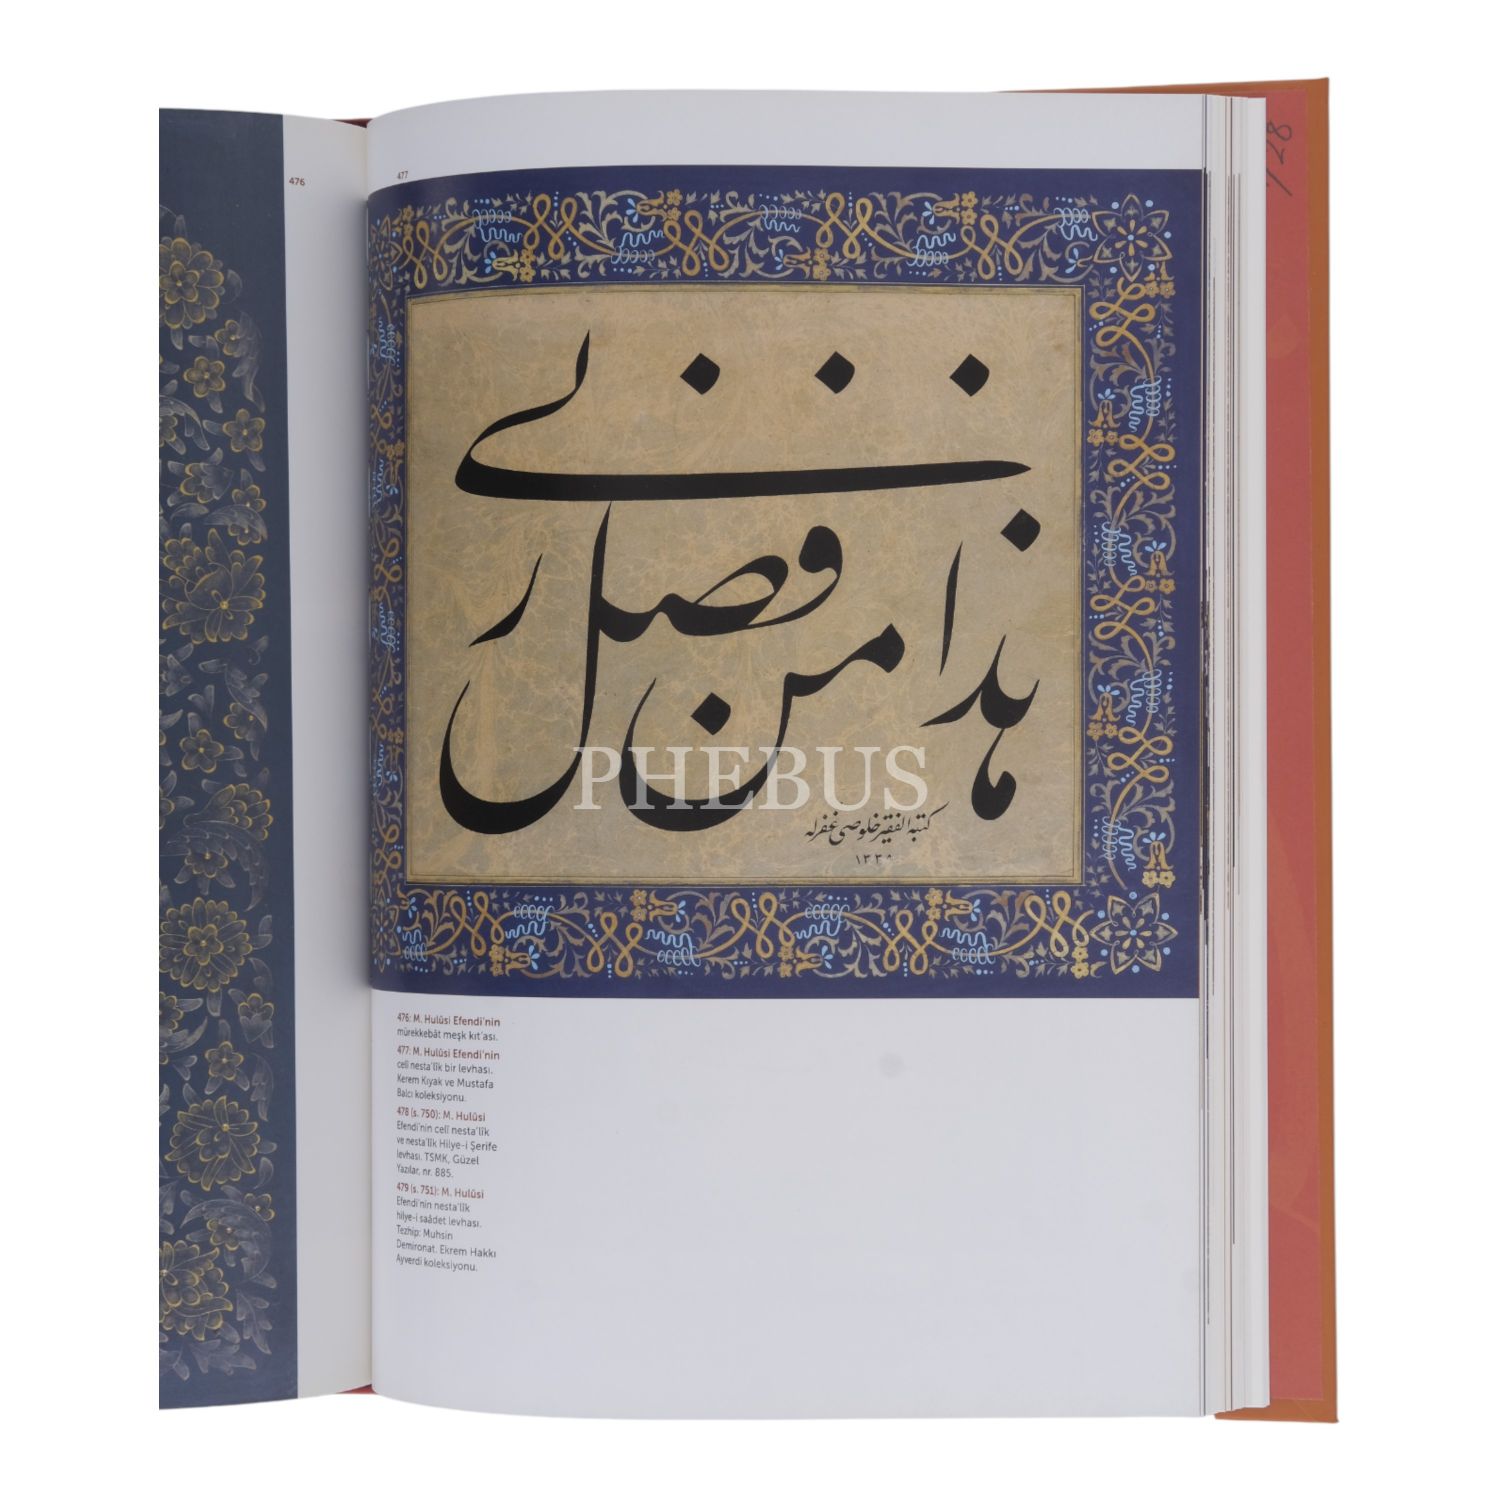 476
477
هذا من فضل ربي
كتبه الفقير خلوصی غفرله
PHEBUS
476: M. Hulûsi Efendi'nin
mürekkebât meşk kıt'ası.
477: M. Hulûsi Efendi'nin
celî nesta'lîk bir levhası.
Kerem Kıyak ve Mustafa
Balcı koleksiyonu.
478 (s. 750): M. Hulûsi
Efendi'nin celî nesta'lîk
ve nesta'lîk Hilye-i Şerife
levhası. TSMK, Güzel
Yazılar, nr. 885.
479 (s. 751): M. Hulûsi
Efendi'nin nesta'lîk
hilye-i saâdet levhası.
Tezhip: Muhsin
Demironat. Ekrem Hakkı
Ayverdi koleksiyonu.